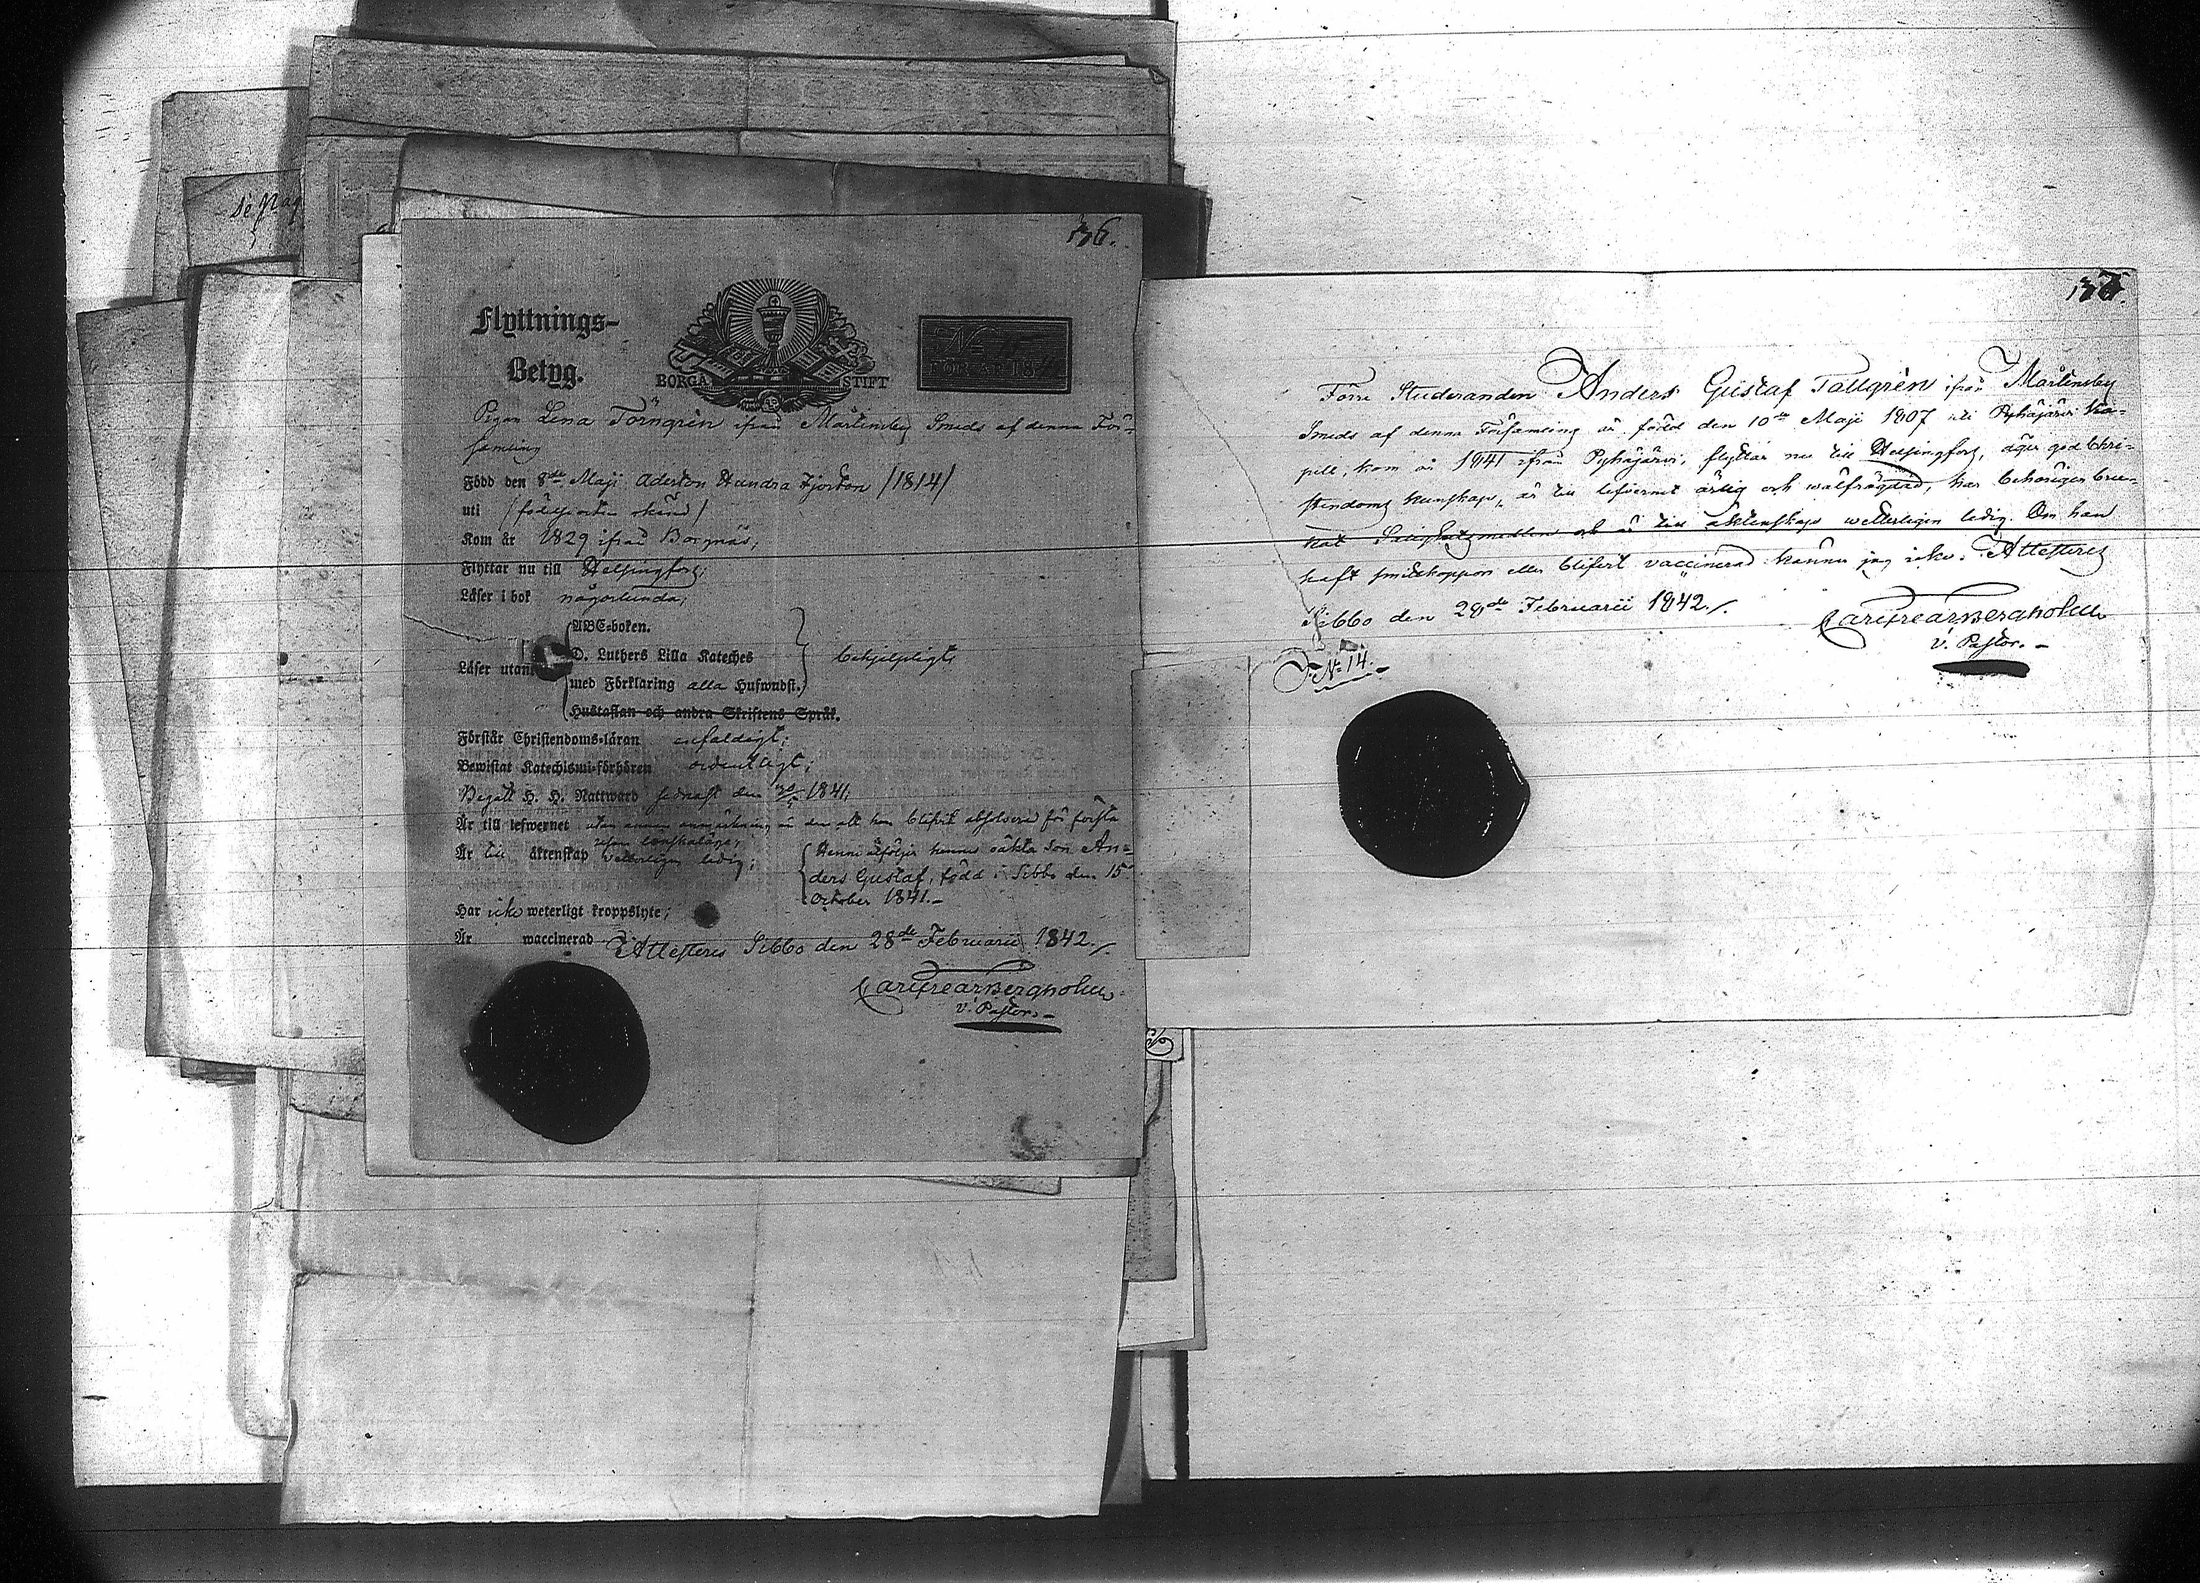 136.
Flyttnings-
Betyg.
BORGÅ STIFT
No 15
FÖR ÅR 184
Pigan Lena Törngrén ifrån Mårtensby Smeds af denna För=
samling
Född den 8de Maji Aderton Hundra Fjorton /1814/
uti
Kom år 1829 ifrån Borgnäs,
Flyttar nu till Helsingfors;
Läser i bok någorlunda;
ABC-boken.
Läser utan D. Luthers Lilla Kateches behjelpligt;
med Förklaring alla Hufwudst.
Hustaflan och andra Skriftens Språk.
Förstår Christendoms-läran enfaldigt;
Bewistat Katechismi-förhören ordentligt;
Begått H. H. Nattward sednast den 1841;
Är till lefwernet utan annan anmärkning än den att hon blifvit absolverad för första
resan lönskaläge,
Är till äktenskap wetterligen ledig;
Henne åtföljer hennes oäkta Son An=
ders Gustaf, född i Sibbo den 15
October 1841.-
Har icke weterligt kroppslyte;
Är waccinerad
Attesteras Sibbo den 28de Februarii 1842./.
Carl Fredr Bergholm
v. Pastor.-
Förre Studeranden Anders Gustaf Tallgrén ifrån Mårtensby
Smeds af denna Församling är född den 10de Maji 1807 uti Pyhäjärvi Ka-
pell, kom år 1841 ifrån Pyhäjärvi, flyttar nu till Helsingfors, äger god Chri-
stendoms kunskap, är till lefvernet ärlig och wälfrägdad, har behörigen bru-
kat Salighetsmedlen och är till äktenskap wetterligen ledig. Om han
haft smittkoppor eller blifvit vaccinerad känner jag icke. Attesteras
Sibbo den 28de Februarii 1842./.
Carl Fredr Bergholm
v. Pastor.-
No 14.